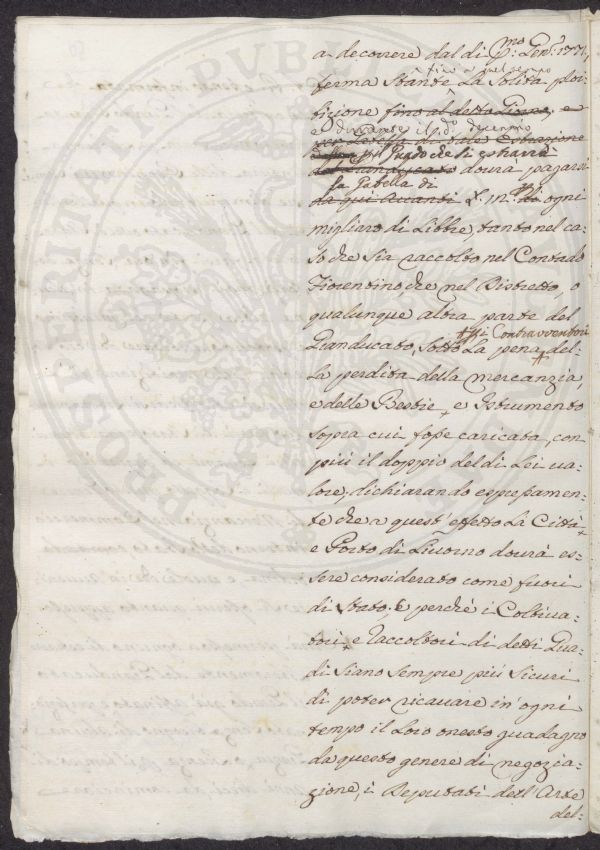 a decorrere dal dì p.mo Genn.o 1771,
fino a quel tempo
ferma stante La Solita proi-
bizione fino al detto Giorno, e
e durante il d.o decennio
per Guado che si estrarrà
dal Granducato dovrà pagarsi
la Gabella di
da qui avanti ogni
migliaro di Libbre, tanto nel ca-
so che sia raccolto nel Contado
Fiorentino, che nel Distretto, o
qualunque altra parte del
a i Contravventori
Granducato, sotto La pena del-
la perdita della mercanzia,
e delle Bestie, e Istrumento
sopra cui fosse caricata, con
più il doppio del di Lei va-
lore, dichiarando espressamen-
te che a quest'effetto La Città,
e Porto di Livorno dovrà es-
sere considerato come fuori
di Stato; e perchè i Coltiva-
tori, e Raccoltori di detti Gua-
di siano sempre più sicuri
di poter ricavare in ogni
tempo il Loro onesto guadagno
da questo genere di negozia-
zione, i Deputati dell'Arte
del-
PROSPERITATI PUBLICAE